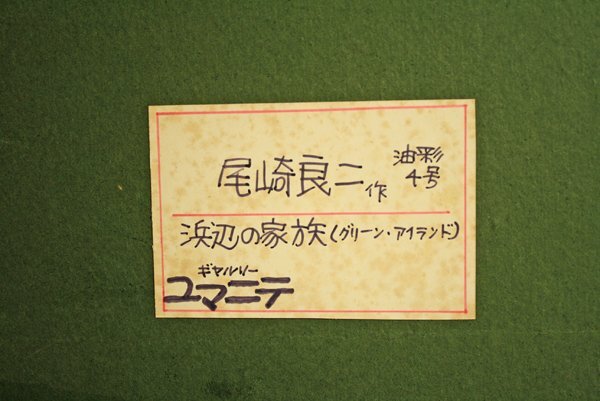 尾崎良二作 油彩4号
浜辺の家族(グリーン・アイランド)
ギャルリー
ユマニテ